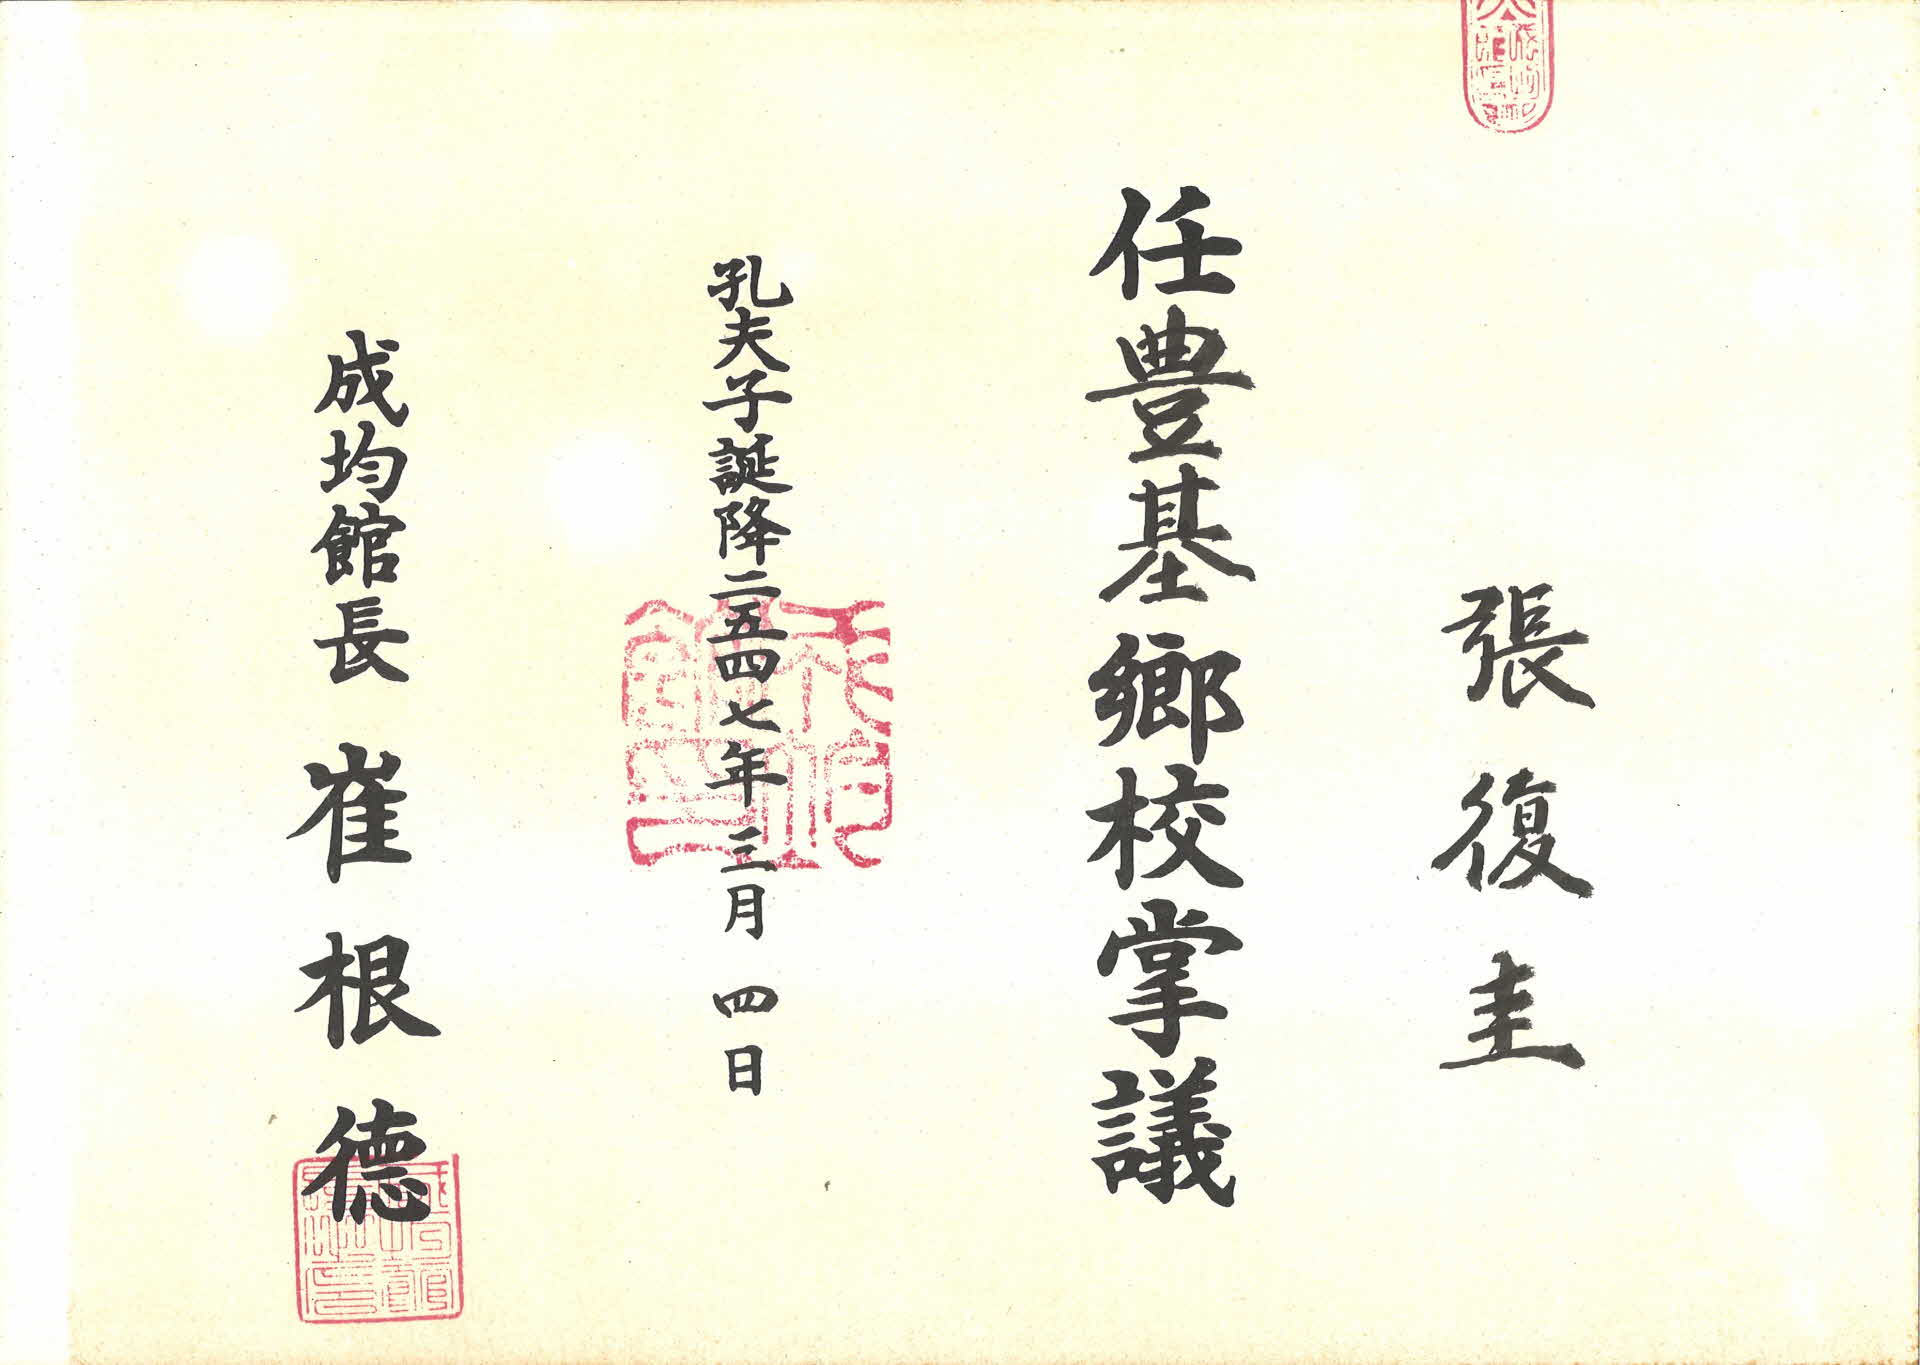 張復圭
任豊基鄉校掌議
孔夫子誕降二五四七年三月四日
成均館長崔根德